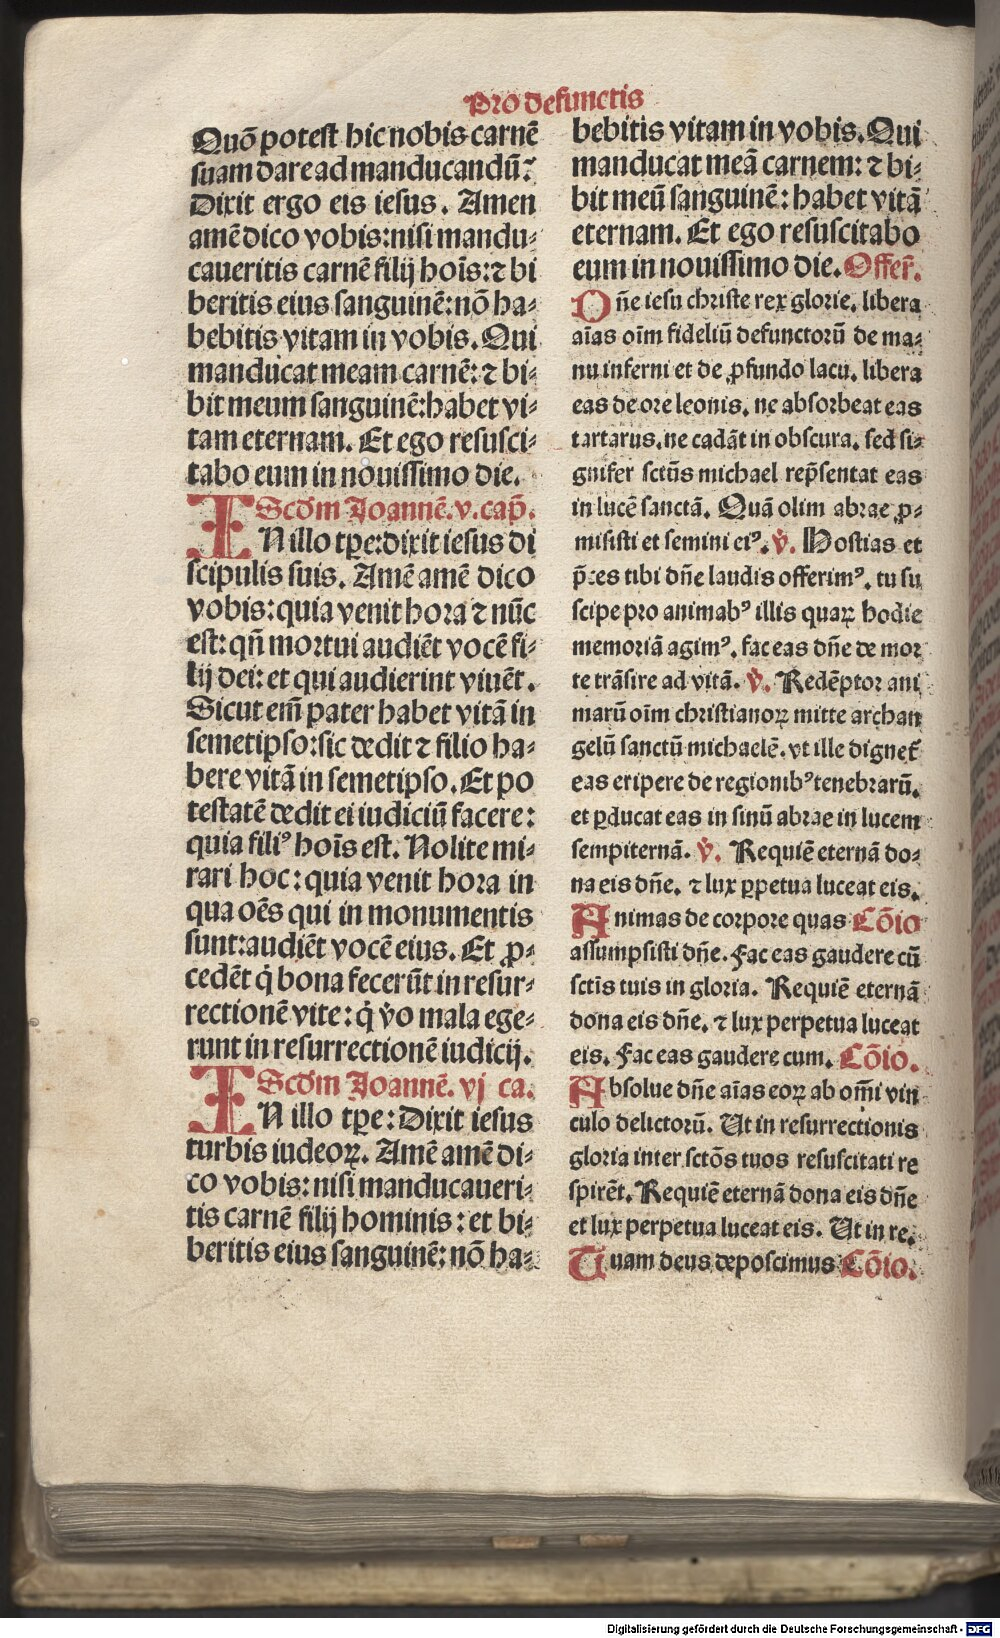 Pro defunctis
Quō potest hic nobis carnē
suam dare ad manducandū?
Dixit ergo eis iesus. Amen
amē dico vobis: nisi mandu⸗
caueritis carnē filij hoīs: ⁊ bi
beritis eius sanguinē: nō ha⸗
bebitis vitam in vobis. Qui
manducat meam carnē: ⁊ bi⸗
bit meum sanguinē: habet vi⸗
tam eternam. Et ego resusci⸗
tabo eum in nouissimo die.
Scd̄m Joannē. v. cap̄.
IN illo tꝑe: dixit iesus di
scipulis suis. Amē amē dico
vobis: quia venit hora ⁊ nūc
est: qn̄ mortui audiēt vocē fi⸗
lij dei: et qui audierint viuēt.
Sicut em̄ pater habet vitā in
semetipso: sic dedit ⁊ filio ha⸗
bere vitā in semetipso. Et po
testatē dedit ei iudiciū facere:
quia filiꝰ hoīs est. Nolite mi⸗
rari hoc: quia venit hora in
qua oēs qui in monumentis
sunt: audiēt vocē eius. Et ꝓ⸗
cedēt q̇ bona fecerūt in resur⸗
rectionē vite: q̇ v̇o mala ege⸗
runt in resurrectionē iudicij.
Scd̄m Joannē. vj ca.
IN illo tꝑe: Dixit iesus
turbis iudeoꝝ. Amē amē di⸗
co vobis: nisi manducaueri⸗
tis carnē filij hominis: et bi⸗
beritis eius sanguinē: nō ha⸗
bebitis vitam in vobis. Qui
manducat meā carnem: ⁊ bi⸗
bit meū sanguinē: habet vitā
eternam. Et ego resuscitabo
eum in nouissimo die. Offer̄.
Oñe iesu christe rex glorie. libera
aīas oīm fideliū defunctorū de ma⸗
nu inferni et de ꝓfundo lacu. libera
eas de ore leonis. ne absorbeat eas
tartarus. ne cadāt in obscura. sed si⸗
gnifer sctūs michael rep̄sentat eas
in lucē sanctā. Quā olim abrae ꝓ⸗
misisti et semini eiꝰ. V̇. Hostias et
p̄ces tibi dñe laudis offerimꝰ. tu su
scipe pro animabꝰ illis quaꝝ hodie
memoriā agimꝰ. fac eas dñe de mor
te trāsire ad vitā. V̇. Redēptor ani
marū oīm christianoꝝ mitte archan
gelū sanctū michaelē. vt ille dignet᷑
eas eripere de regionibꝰ tenebrarū.
et ꝑducat eas in sinū abrae in lucem
sempiternā. V̇. Requiē eternā do⸗
na eis dñe. ⁊ lux ꝑpetua luceat eis.
Animas de corpore quas Cōio
assumpsisti dñe. Fac eas gaudere cū
sctīs tuis in gloria. Requiē eternā
dona eis dñe. ⁊ lux perpetua luceat
eis. Fac eas gaudere cum. Cōio.
Absolue dñe aīas eoꝝ ab om̄i vin
culo delictorū. Ut in resurrectionis
gloria inter sctōs tuos resuscitati re
spirēt. Requiē eternā dona eis dñe
et lux perpetua luceat eis. Ut in re.
Tuam deus deposcimus Cōio.
Digitalisierung gefördert durch die Deutsche Forschungsgemeinschaft - DFG